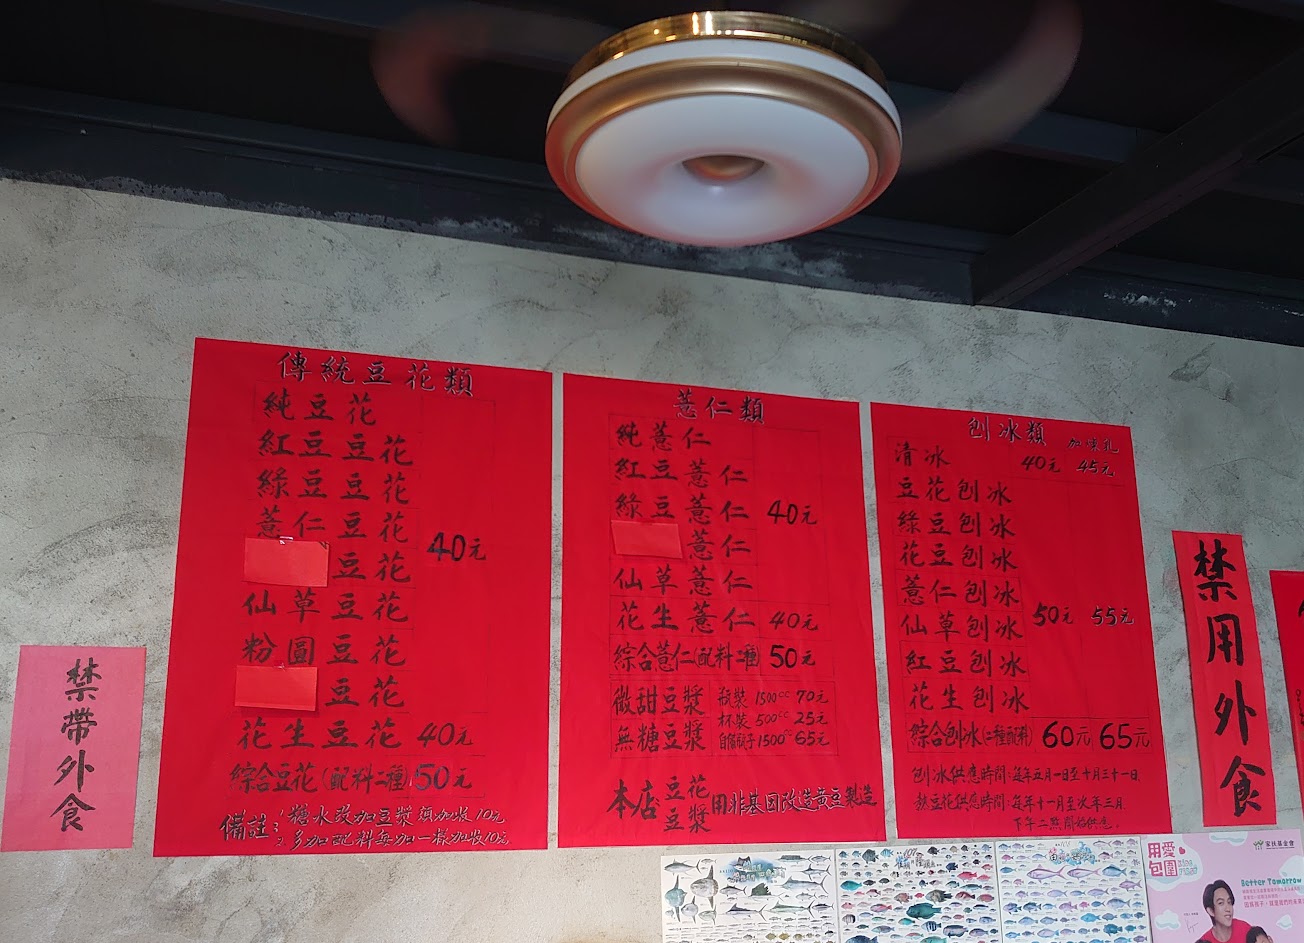 傳統豆花類
純豆花
紅豆豆花
綠豆豆花
薏仁豆花
豆花
仙草豆花
粉圓豆花
豆花
40元
花生豆花 40元
綜合豆花(配料二種) 50元
備註:1.糖水改加豆漿類加收10元
2.多加配料每加一樣加收10元
薏仁類
純薏仁
紅豆薏仁
綠豆薏仁
薏仁
仙草薏仁
40元
花生薏仁 40元
綜合薏仁(配料二種) 50元
微甜豆漿
無糖豆漿
瓶裝 1500cc 70元
杯裝 500cc 25元
自備瓶子 1500cc 65元
本店豆花豆漿用非基因改造黃豆製造
刨冰類 加煉乳
清冰 40元 45元
豆花刨冰
綠豆刨冰
花豆刨冰
薏仁刨冰
仙草刨冰
紅豆刨冰
花生刨冰
50元 55元
綜合刨冰(二種配料) 60元 65元
刨冰供應時間:每年五月一日至十月三十一日
熱豆花供應時間:每年十一月至次年三月
下午二點開始供應
禁帶外食
禁用外食
用愛包圍
家扶基金會
Better Tomorrow